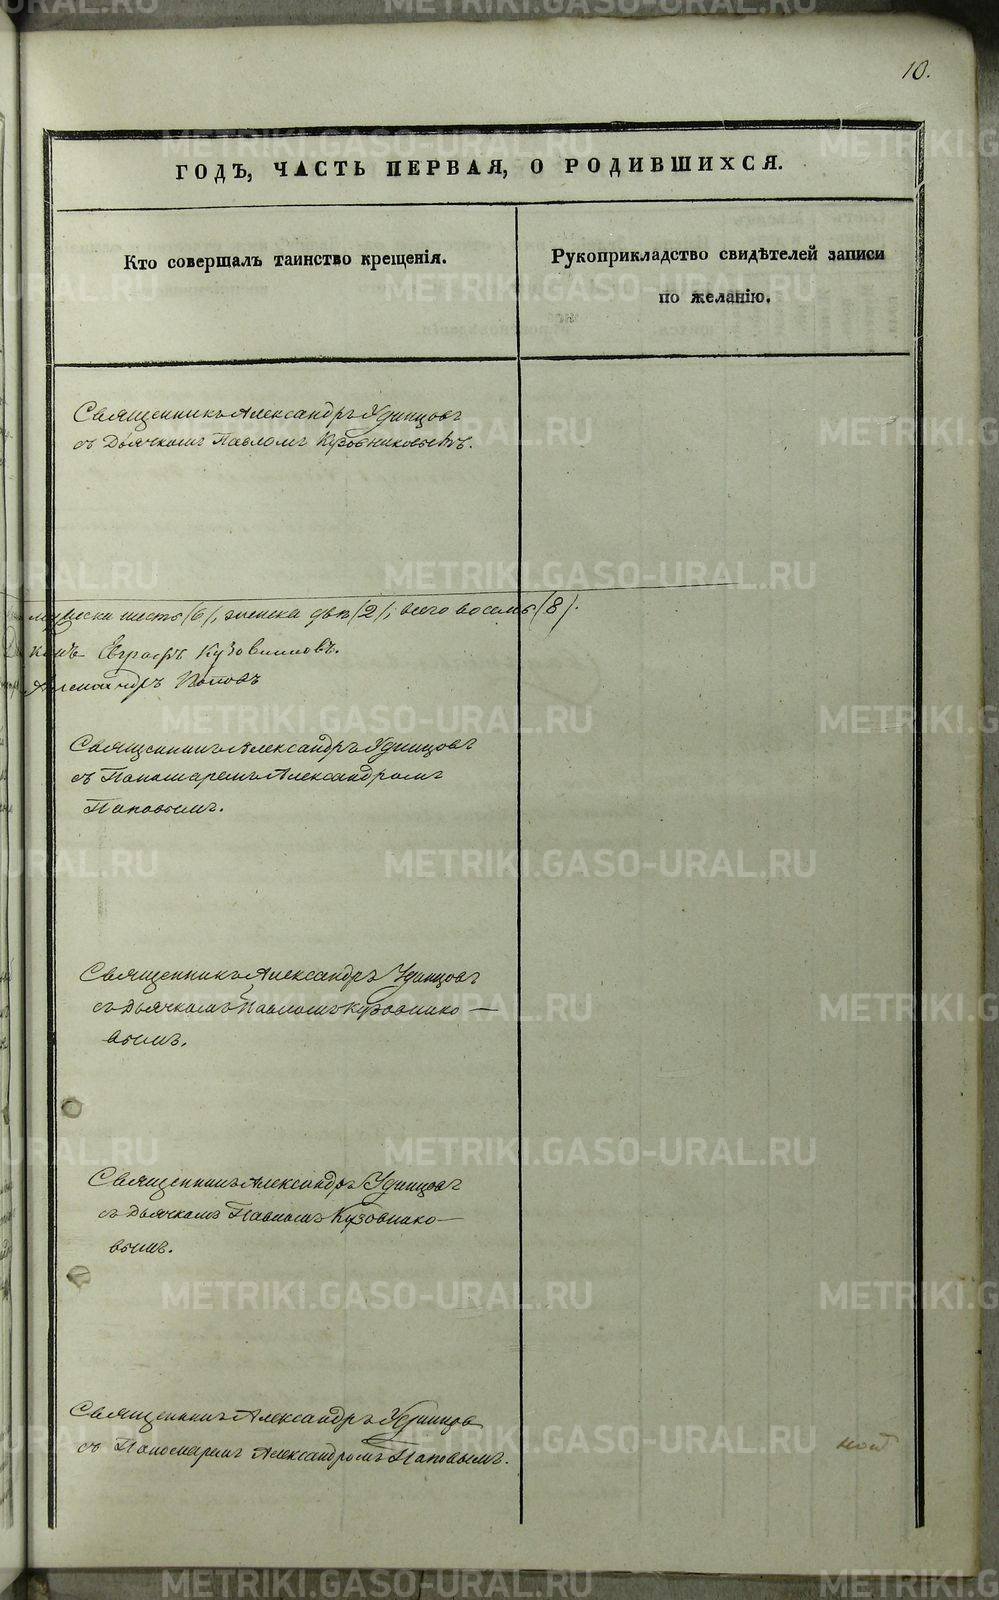 10.
ГОДЪ, ЧАСТЬ ПЕРВАЯ, О РОДИВШИХСЯ.
Кто совершалъ таинство крещенія.
Рукоприкладство свидѣтелей записи
по желанію.
Священникъ Александръ Удинцовъ
съ Дьячкомъ Павломъ Кузовниковымъ.
мужеска шесть (6), женска двѣ (2), всего восемь (8).
Евграфъ Кузовниковъ.
Александръ Поповъ
Священникъ Александръ Удинцовъ
съ Пономаремъ Александромъ
Поповымъ.
Священникъ Александръ Удинцовъ
съ Дьячкомъ Павломъ Кузовнико—
вымъ.
Священникъ Александръ Удинцовъ
съ Дьячкомъ Павломъ Кузовнико—
вымъ.
Священникъ Александръ Удинцовъ
съ Пономаремъ Александромъ Поповымъ.
METRIKI.GASO-URAL.RU